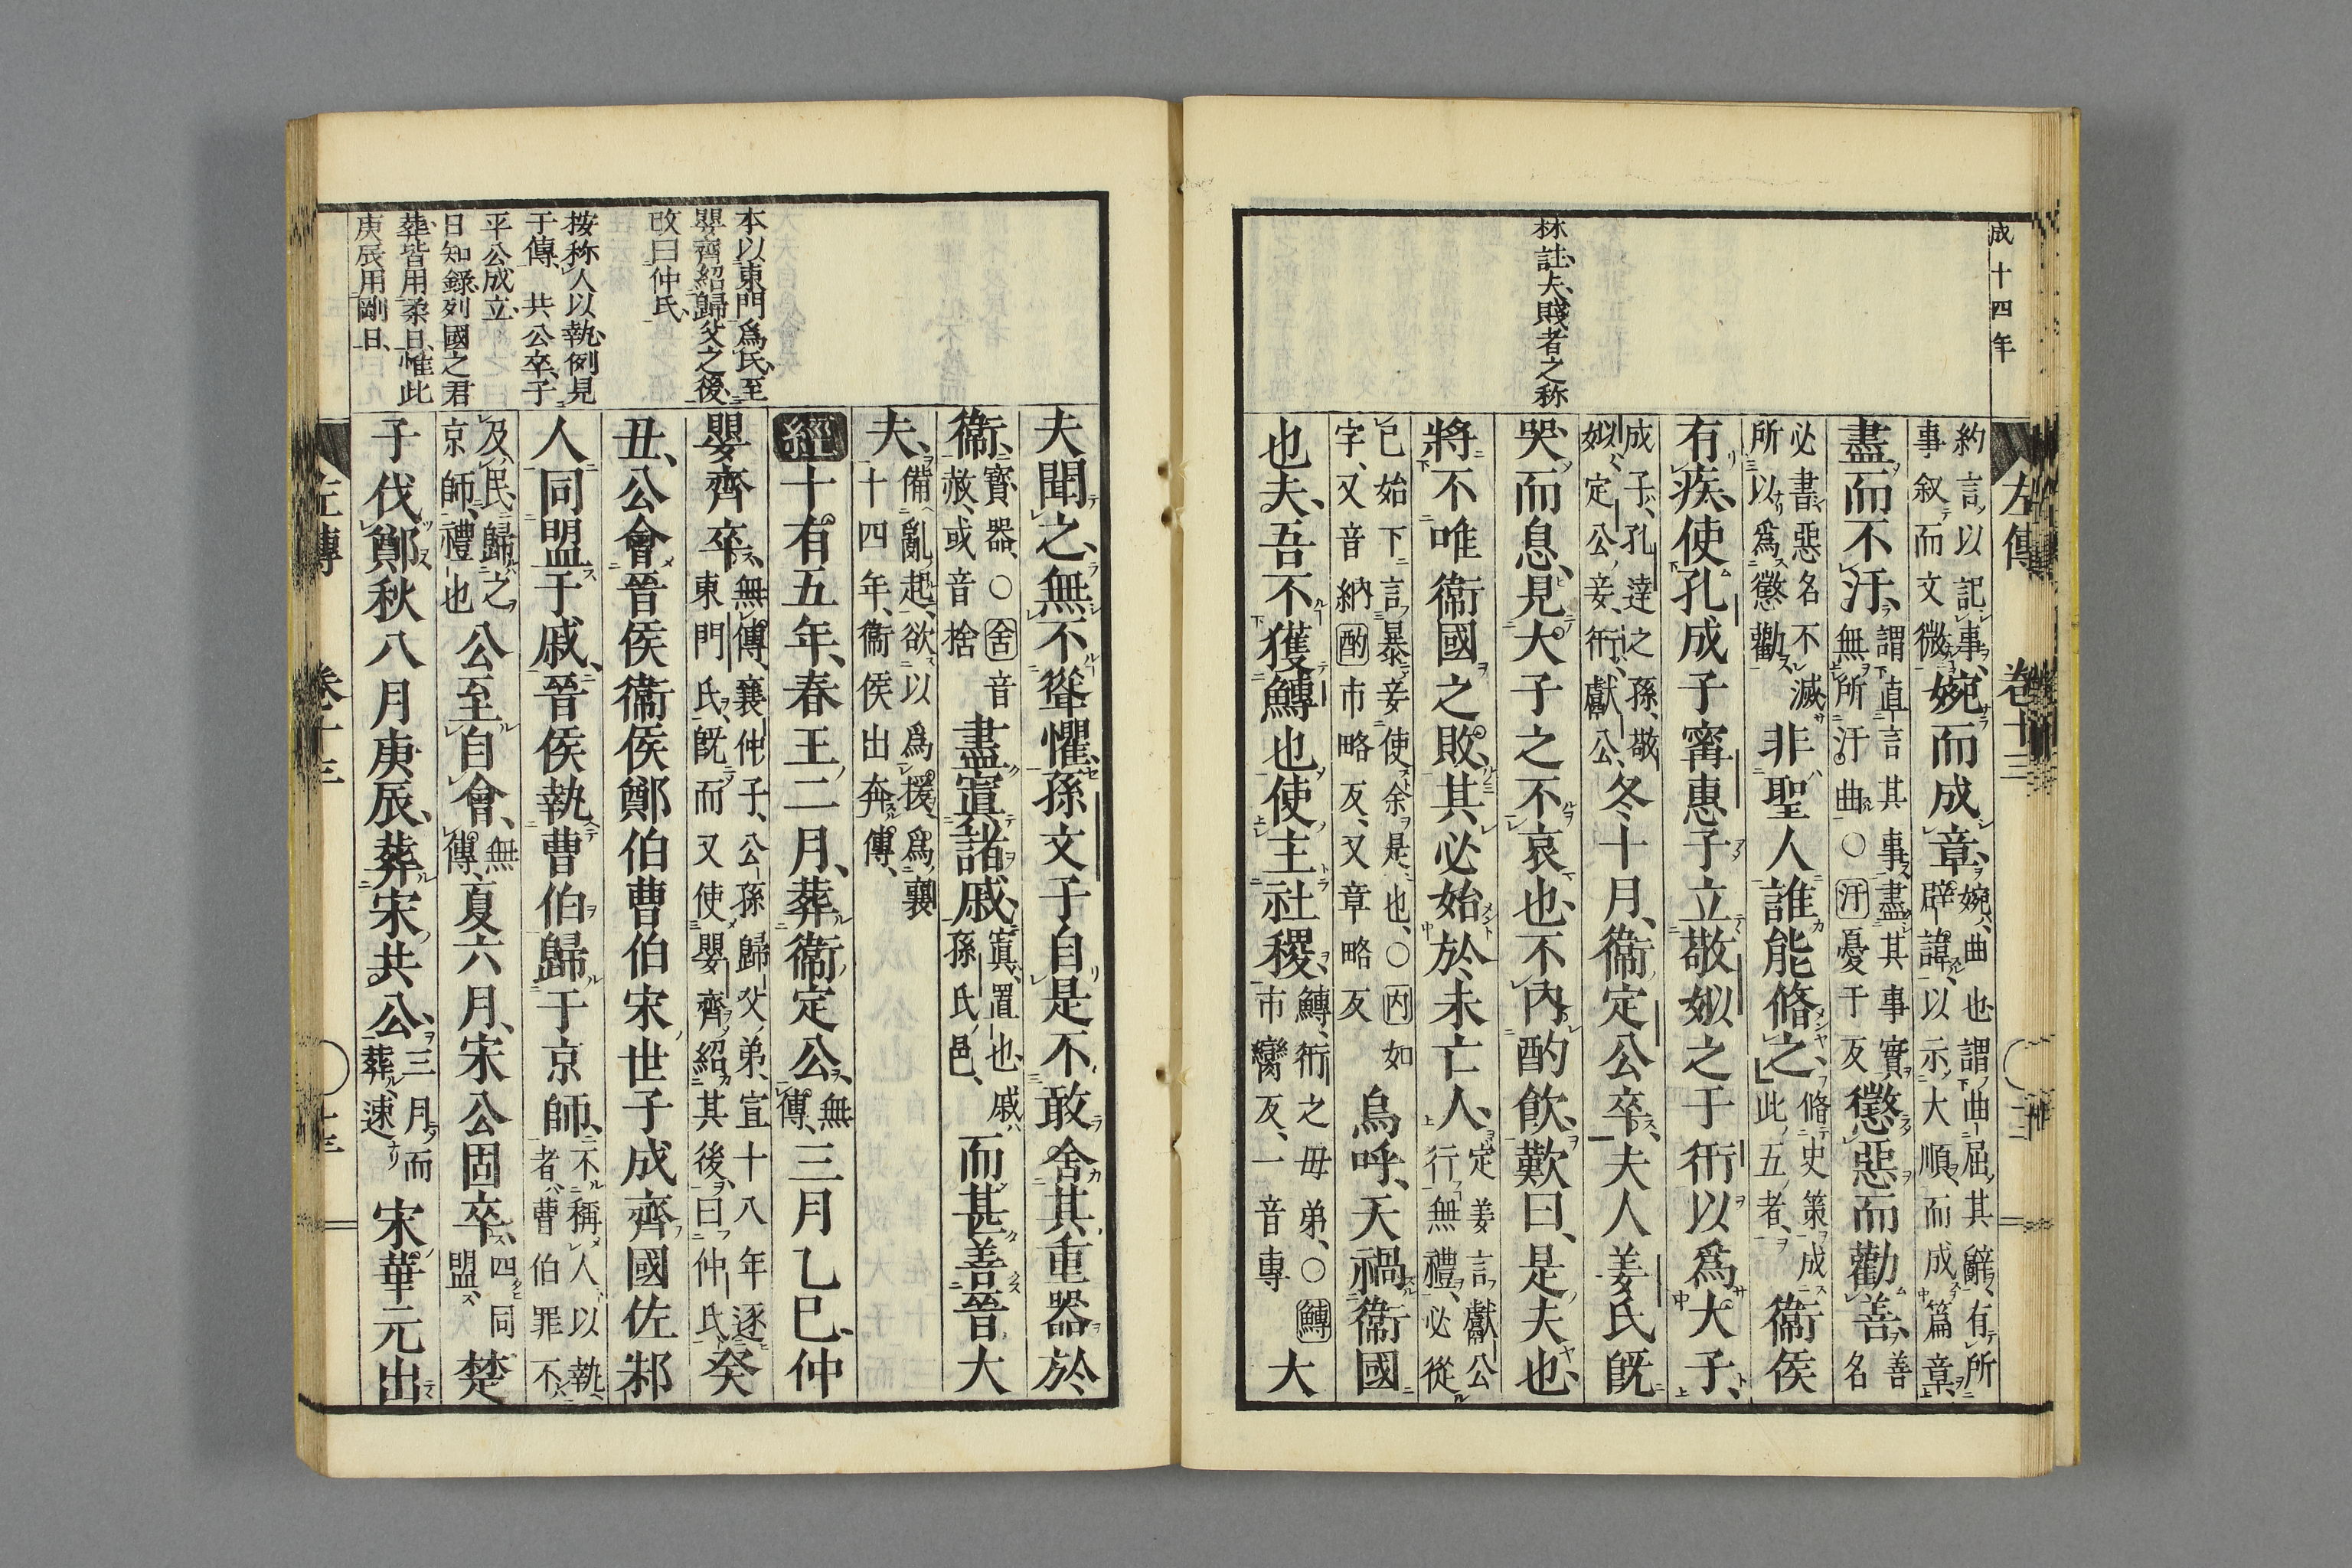 成十四年
左傳 卷十三
林註、夫、賤者之称
約言以記事、事叙而文微、婉而成章、婉、曲也、謂曲屈其辭、有所辟諱、以示大順、而成篇章、
盡而不汙、謂直言其事、盡其事實、無所汙曲〇汙憂于反懲惡而勸善、善名
必書、惡名不滅、所以爲懲勸非聖人誰能脩之、脩史策成此五者、衞侯
有疾、使孔成子甯惠子立敬姒之子衎以爲大子、
成子、孔達之孫、敬姒、定公妾、衎、獻公、冬十月、衞定公卒、夫人姜氏旣
哭而息、見大子之不哀也、不內酌飮、歎曰、是夫也、
將不唯衞國之敗、其必始於未亡人、定姜言獻公行無禮、必從
已始下言暴妾使余是也、〇內如字、又音納酌市略反、又章略反烏呼、天禍衞國
也夫、吾不獲鱄也使主社稷、鱄、衎之毋弟、〇鱄市臠反、一音專大
夫聞之、無不聳懼、孫文子自是不敢舍其重器於
衞、寶器、〇舍音赦、或音捨盡寘諸戚、寘、置也、戚、孫氏邑、而甚善晉大
夫、備亂起、欲以爲援、爲襄十四年、衞侯出奔傳、
經十有五年、春王二月、葬衞定公、無傳、三月乙巳、仲
嬰齊卒、無傳、襄仲子、公孫歸父弟、宣十八年逐東門氏、旣而又使嬰齊紹其後、曰仲氏癸
丑、公會晉侯衞侯鄭伯曹伯宋世子成齊國佐邾
人同盟于戚、晉侯執曹伯歸于京師、不稱人以執者、曹伯罪不
及民、歸之京師、禮也公至自會、無傳、夏六月、宋公固卒、四同盟、楚
子伐鄭秋八月庚辰、葬宋共公、三月而葬、速宋華元出
本以東門爲氏、至
嬰齊紹歸父之後、
改曰仲氏、
按称人以執、例見
于傳、 共公卒、子
平公成立、
日知錄、列國之君
葬皆用柔日、惟此
庚辰用剛日、
左傳 卷十三